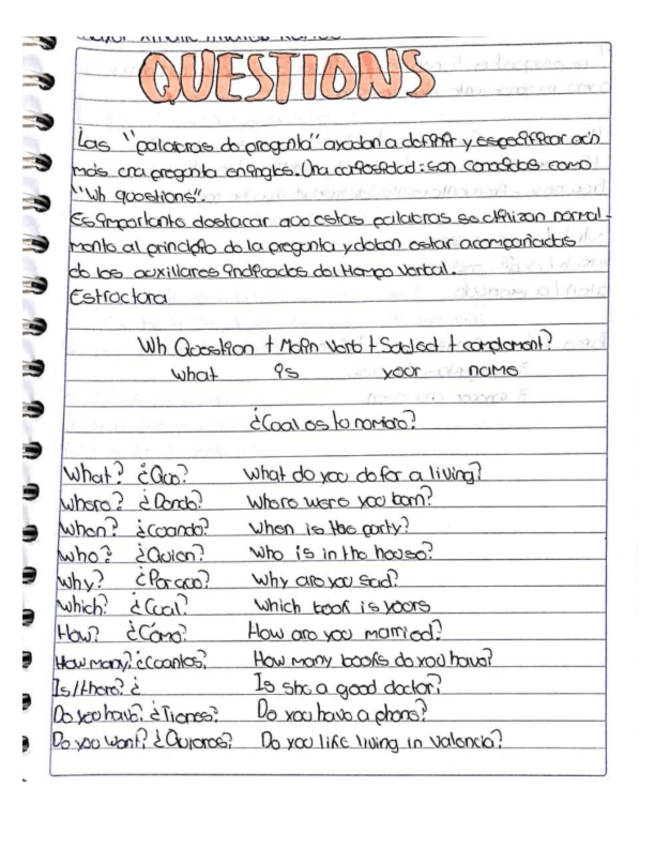 QUESTIONS
Las "palabras de pregunta" ayudan a definir y especificar aún
más una pregunta en ingles. Una curiosidad: son conocidas como
"Wh questions".
Es importante destacar que estas palabras se utilizan normal-
mente al principio de la pregunta y deben estar acompañadas
de los auxiliares indicados del tiempo verbal.
Estructura
Wh Question + Main Verb + Subject + complement?
what is your name
¿Cual es tu nombre?
What? ¿Que? What do you do for a living?
Where? ¿Donde? Where were you born?
When? ¿Cuando? When is the party?
Who? ¿Quien? Who is in the house?
Why? ¿Por que? Why are you sad?
Which? ¿Cual? Which book is yours
How? ¿Cómo? How are you married?
How many? ¿Cuantos? How many books do you have?
Is/there? ¿ Is she a good doctor?
Do you have? ¿Tienes? Do you have a phone?
Do you want? ¿Quieres? Do you like living in Valencia?